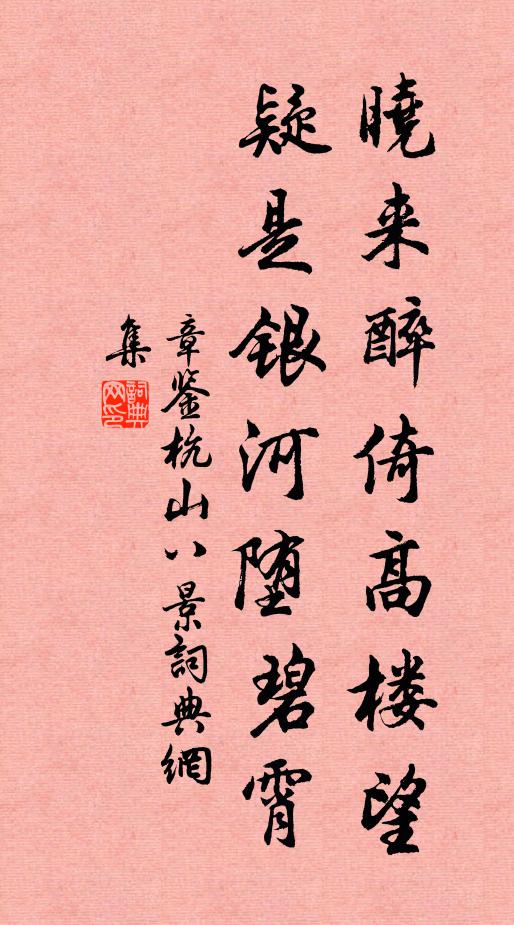 曉来醉倚高楼望
疑是銀河堕碧霄
章鉴杭山八景詞典網
集
詞典網印